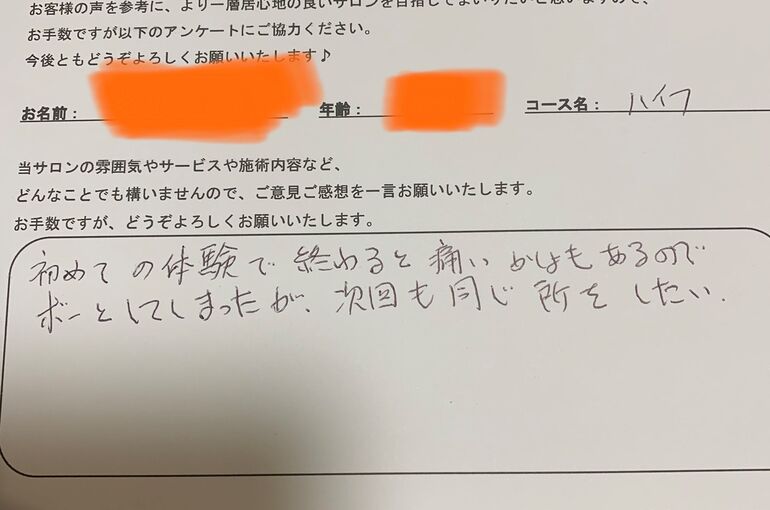 お客様の声を参考に、より一層居心地の良いサロンを目指してまいりたいと思いますので、
お手数ですが以下のアンケートにご協力ください。
今後ともどうぞよろしくお願いいたします♪
お名前： 年齢： コース名： ハイフ
当サロンの雰囲気やサービスや施術内容など、
どんなことでも構いませんので、ご意見ご感想を一言お願いいたします。
お手数ですが、どうぞよろしくお願いいたします。
初めての体験で終わると痛いかしょもあるので
ボーとしてしまったが、次回も同じ所をしたい.